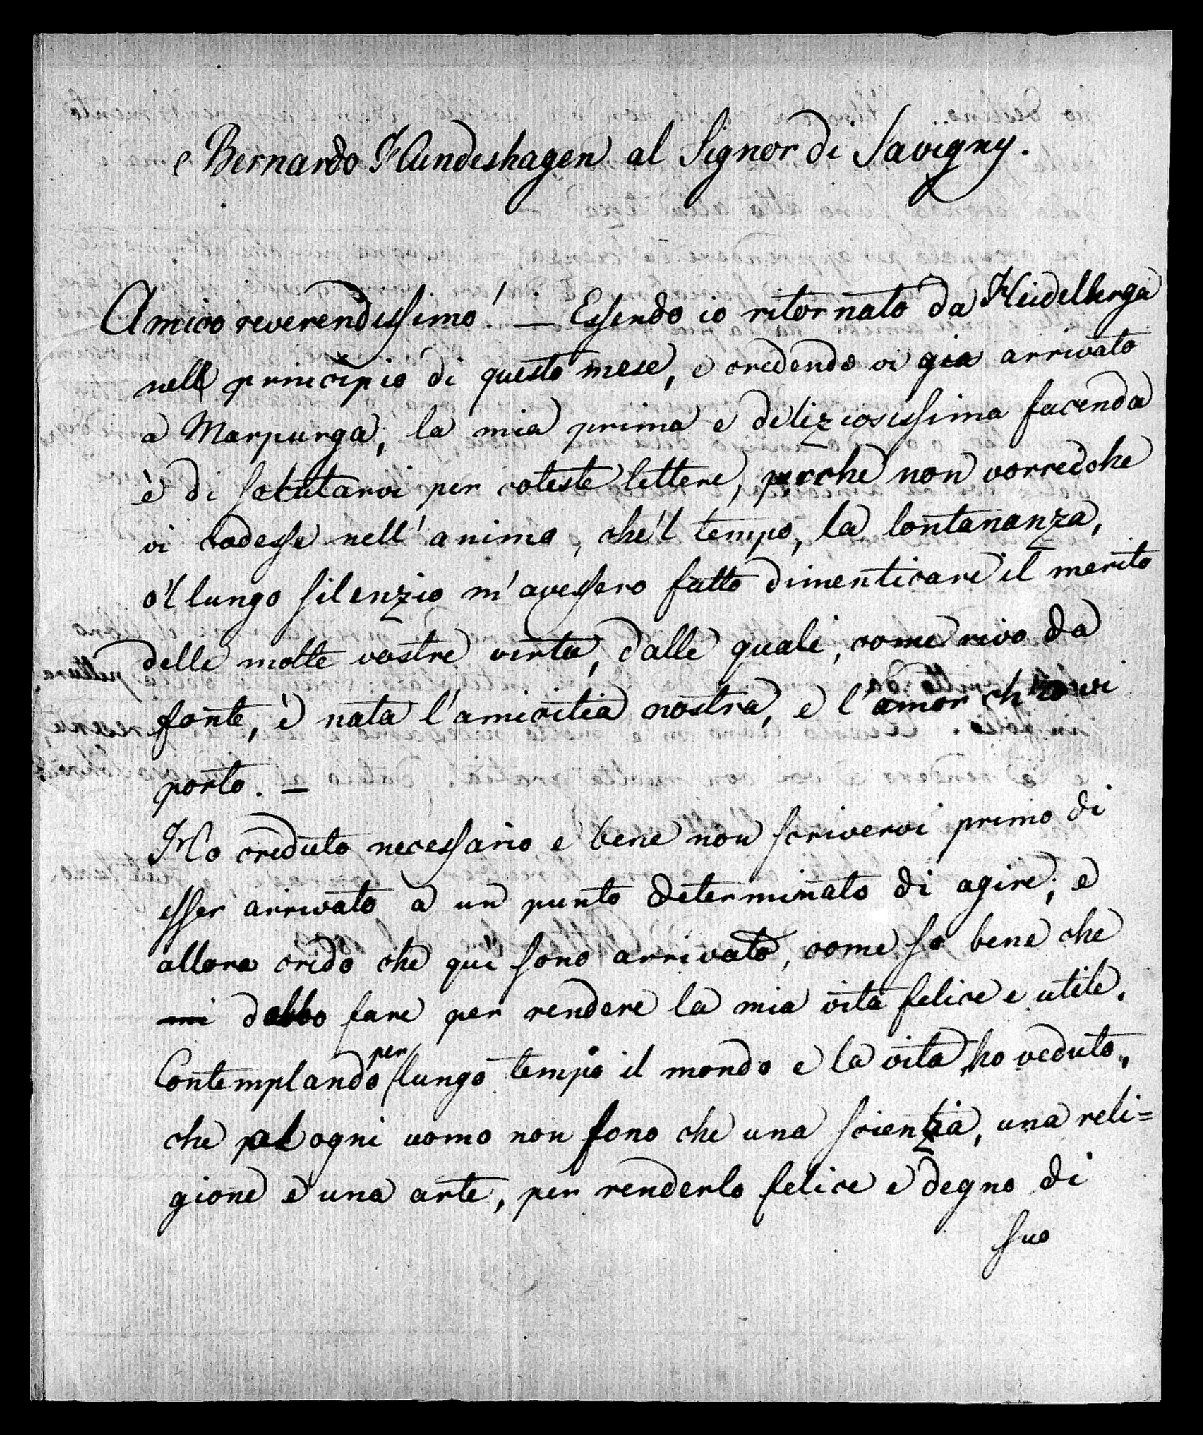 Bernardo Hundeshagen al Signor di Savigny.
Amico reverendissimo! — Essendo io ritornato da Heidelberga
nell principio di questo mese, e credendo vi gia arrivato
a Marpurga, la mia prima e deliziosissima facenda
é di salutarvi per coteste lettere, perche non vorrei che
vi cadesse nell'animo, che'l tempo, la lontananza,
o'l lungo silenzio m'avessero fatto dimenticare il merito
delle molte vostre virtu, dalle quali, come rivo da
fonte, é nata l'amicitia nostra, e l'amor ch'io vi
porto. —
Ho creduto necessario e bene non scrivervi primo di
esser arrivato a un punto determinato di agire; e
allora credo che qui sono arrivato, come so bene che
mi debbo fare per rendere la mia vita felice e utile.
Contemplando per lungo tempo il mondo e la vita ho veduto,
che ad ogni uomo non sono che una scienzia, una reli=
gione e una arte, per renderlo felice e degno di
suo